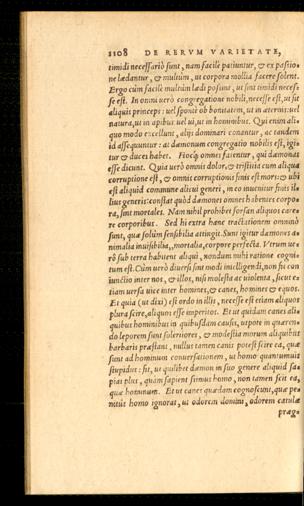 1108 DE RERVM VARIETATE,
timidi necessariò sunt, nam facilè patiuntur, & ex passio-
ne lædantur, & multùm, ut corpora mollia facere solent.
Ergo cùm facilè multùm lædi possint, ut sint timidi necef-
se est. In omni uerò congregatione nobili, necesse est, ut sit
aliquis princeps: uel sponte ob bonitatem, ut in æternis: uel
natura, ut in apibus: uel ui, ut in hominibus. Qui enim ali-
quo modo excellunt, alijs dominari conantur, ac tandem
id assequuntur: at dæmonum congregatio nobilis est, igi-
tur & duces habet. Hocq́ omnes fatentur, qui dæmonas
esse dicunt. Quia uerò omnis dolor, & tristitia cum aliqua
corruptione est, & omnis corruptionis finis est mors: & ubi
est aliquid commune alicui generi, in eo inuenitur finis il-
lius generis: constat quòd dæmones omnes habentes corpo-
ra, sint mortales. Nam nihil prohibet forsan aliquos care-
re corporibus. Sed hi extra hanc tractationem omninò
sunt, quæ solùm sensibilia attingit. Sunt igitur dæmones a-
nimalia inuisibilia, mortalia, corpore perfecta. Vtrum ue-
rò sub terra habitent aliqui, nondum mihi ratione cogni-
tum est. Cùm uerò diuersi sint modi intelligendi, non sit con
iunctio inter nos, & illos, nisi molesta ac uiolenta, sicut e-
tiam uersa uice inter homines, & canes, homines & equos.
Et quia (ut dixi) est ordo in illis, necesse est etiam aliquos
plura scire, aliquos esse imperitos. Et ut quidam canes ali-
quibus hominibus in quibusdam causis, utpote in quæren-
do leporem sunt solertiores, & modestia morum aliquibus
barbaris præstant, nullus tamen canis potest scire ea, quæ
sunt ad hominum conuersationem, ut homo quantumuis
stupidus: sic, ut quilibet dæmon in suo genere aliquid sa-
piat plus, quàm sapiens simus homo, non tamen scit ea,
quæ hominum. Et ut canes quædam cognoscunt, quæ pe-
nitus homo ignorat, ut odorem domini, odorem catulæ
præg-